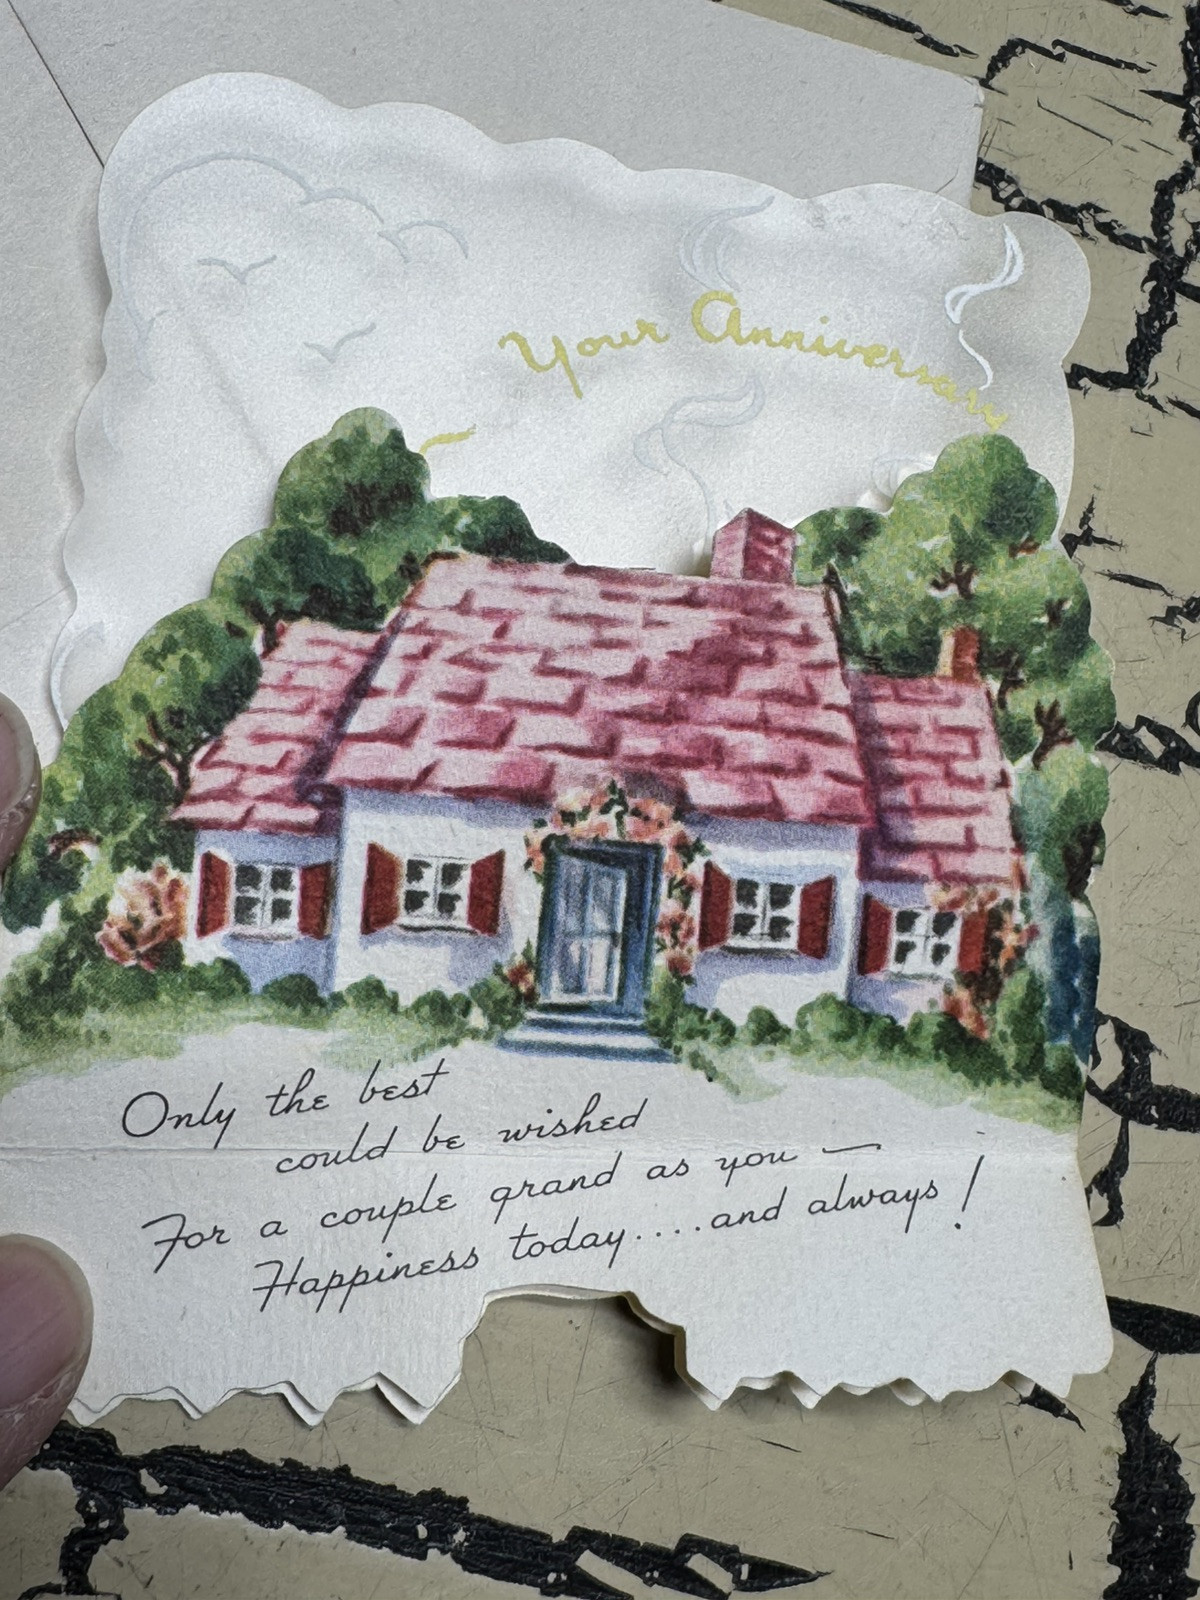 Your Anniversary
Only the best
could be wished
For a couple grand as you —
Happiness today....and always!